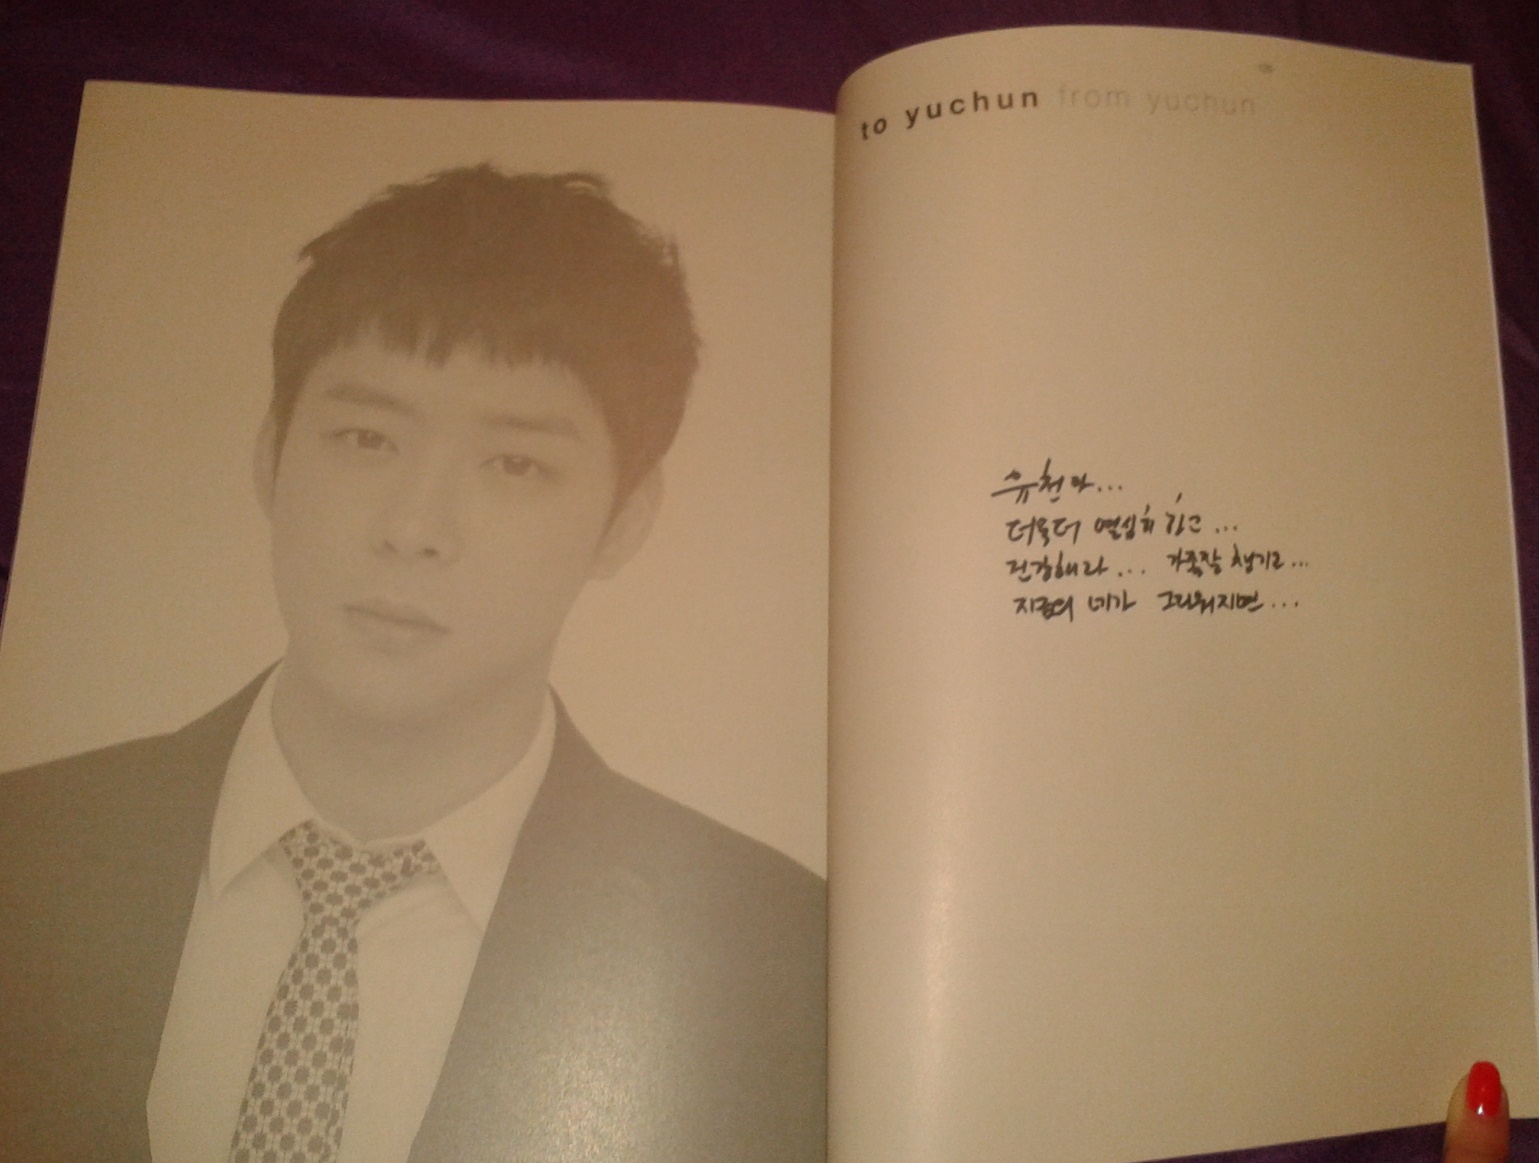 to yuchun from yuchun
유천아...
더욱더 열심히 하고...
건강해라... 가족잘 챙기고...
지금의 네가 그리워지면...